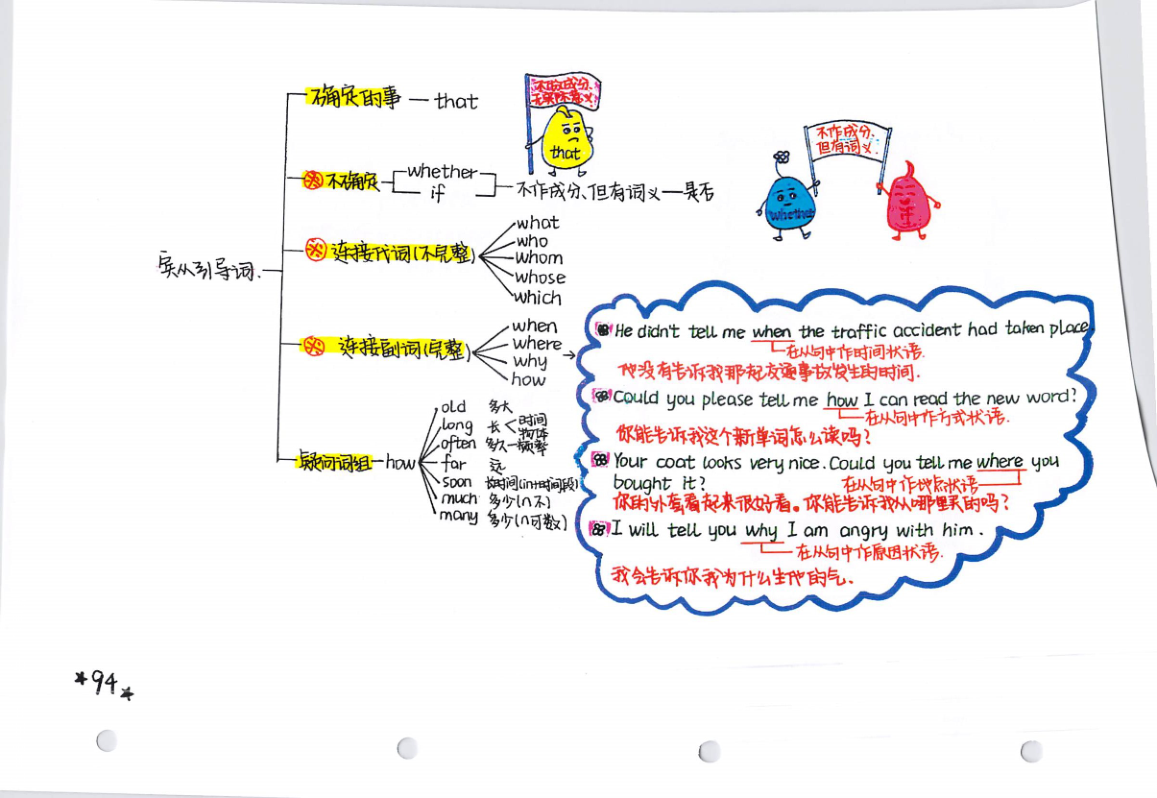 不确定的事 — that
不做成分、
无实际意义
that
不作成分、
但有词义
whether
if
不确定
whether
if
不作成分、但有词义—是否
宾从引导词.
连接代词(不完整)
what
who
whom
whose
which
连接副词(完整)
when
where
why
how
疑问词组 — how
old 多大
long 长 < 时间 物体
often 多久—频率
far 远
soon 长时间(in+时间段)
much 多少(n不)
many 多少(n可数)
He didn't tell me when the traffic accident had taken place
在从句中作时间状语.
他没有告诉我那起交通事故发生的时间.
Could you please tell me how I can read the new word?
在从句中作方式状语.
你能告诉我这个新单词怎么读吗?
Your coat looks very nice. Could you tell me where you
bought it?
在从句中作地点状语
你的外套看起来很好看。你能告诉我从哪里买的吗?
I will tell you why I am angry with him.
在从句中作原因状语.
我会告诉你我为什么生他的气.
*94*